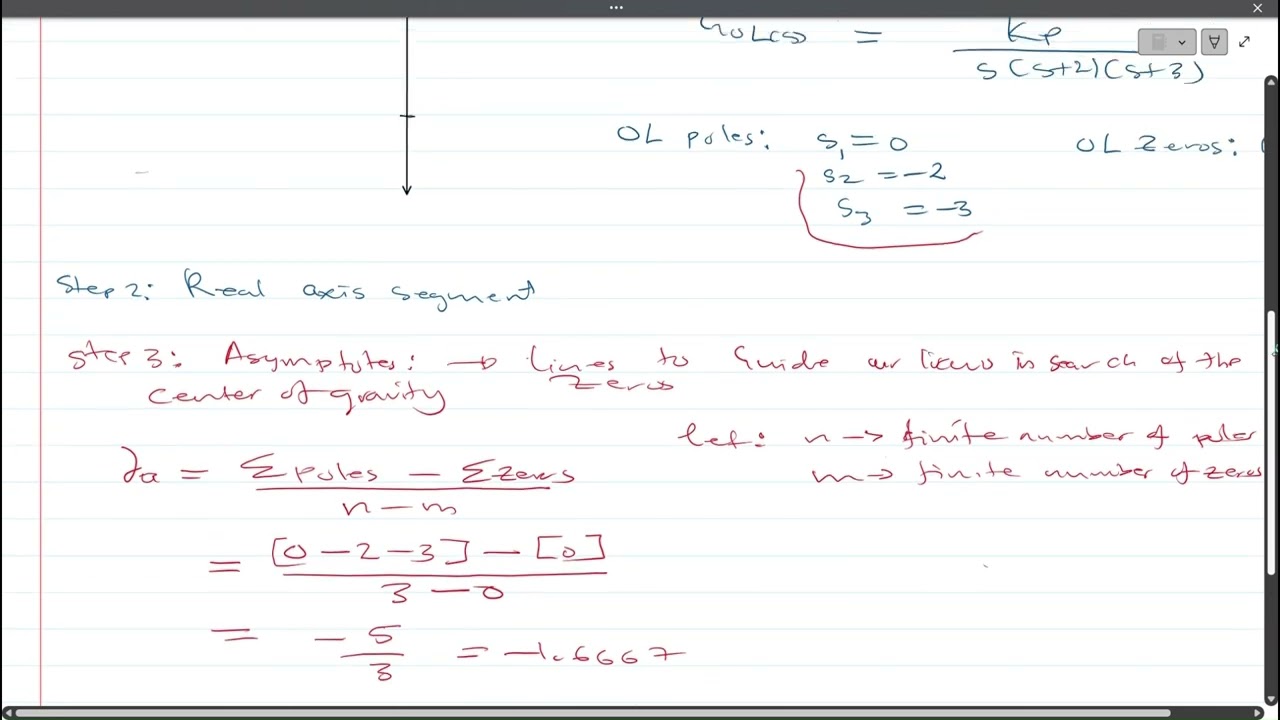 GOL(s) = Kp / s(s+2)(s+3)
OL poles: s1 = 0
s2 = -2
s3 = -3
OL Zeros:
Step 2: Real axis segment
Step 3: Asymptotes: → lines to Guide our locus in search of the
zeros
center of gravity
let: n → finite number of poles
m → finite number of zeros
∂a = Σ poles - Σ zeros / n - m
= [0 - 2 - 3] - [0] / 3 - 0
= -5 / 3 = -1.6667